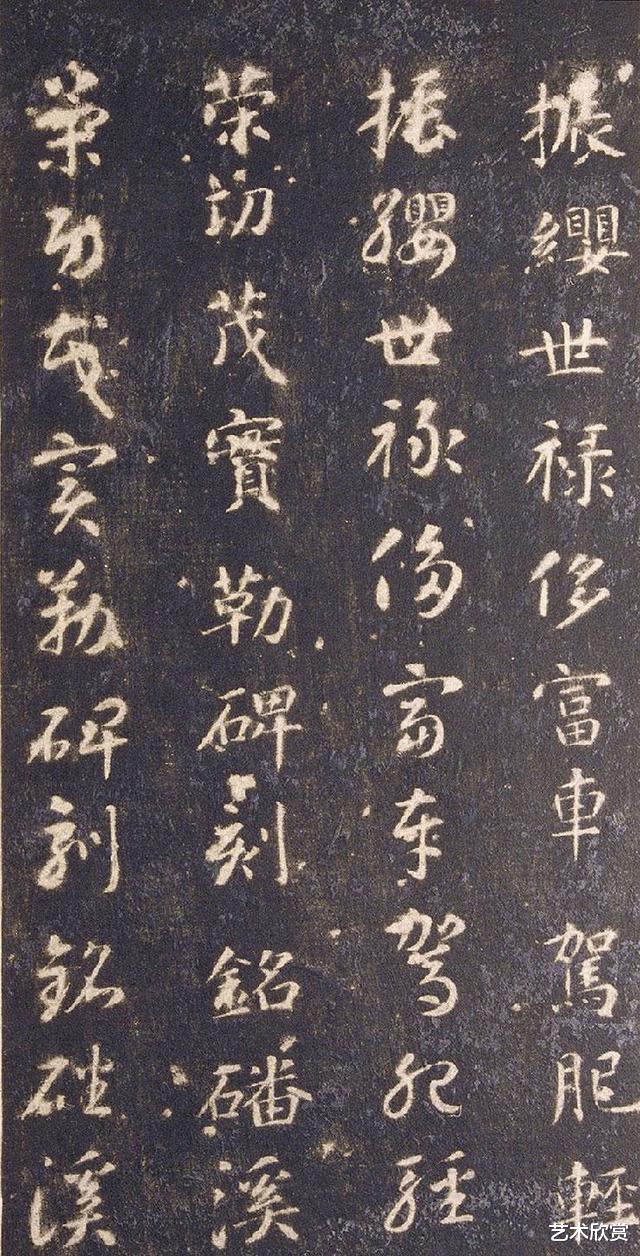 振纓世禄侈富車駕肥輕
振纓世禄侈富車駕肥輕
策功茂實勒碑刻銘磻溪
策功茂實勒碑刻銘磻溪
艺术欣赏